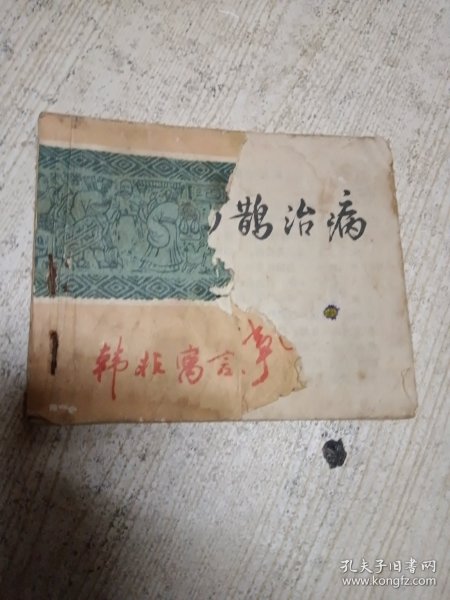 鹊治病
韩非寓言
孔夫子旧书网
www.kongfz.com